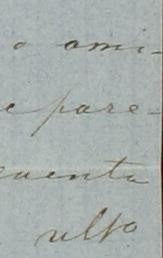 o ami-
e pare-
cuenta
ulto